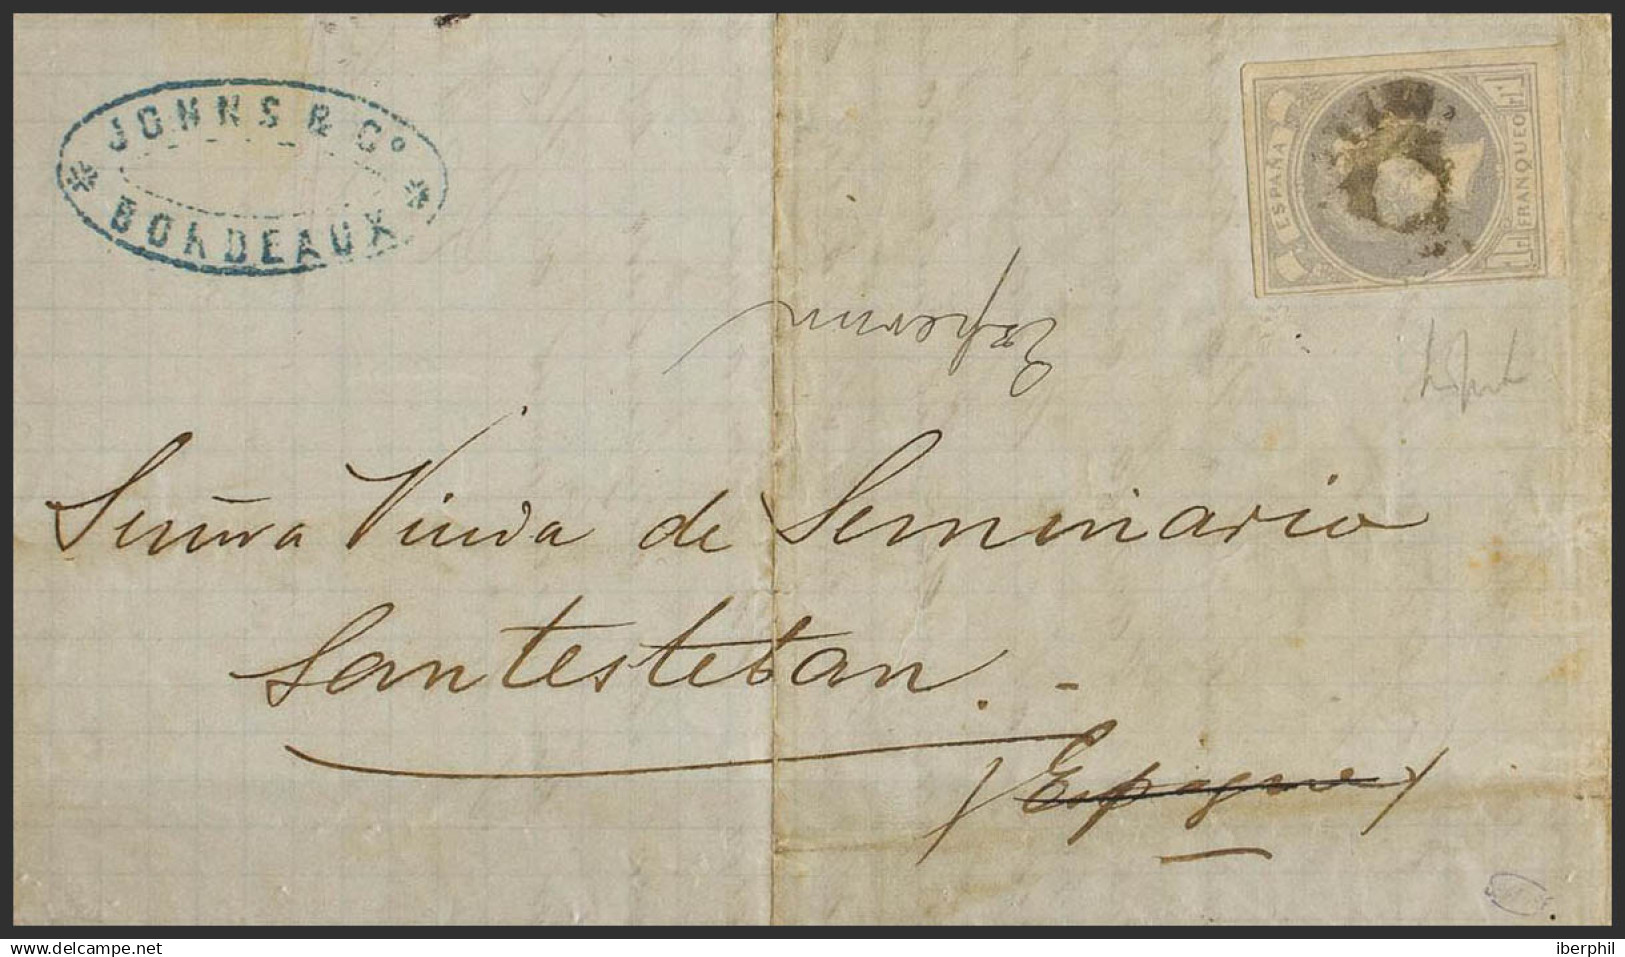 JOHNS & Cº
BORDEAUX
ESPAÑA
FRANQUEO
Señora Viuda de Seminario
Santesteban.-
(Espagne)
www.delcampe.net
iberphil